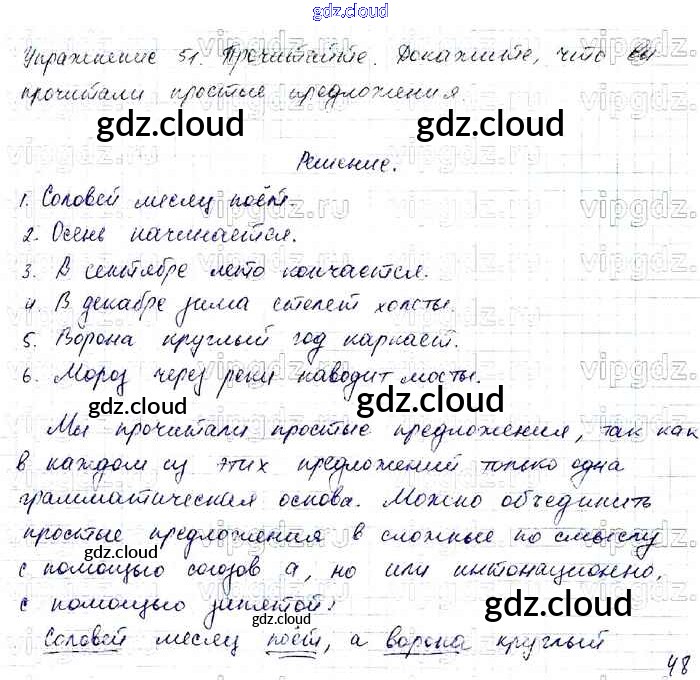 gdz.cloud
Упражнение 51. Прочитайте. Докажите, что вы
прочитали простые предложения.
gdz.cloud gdz.cloud
Решение.
1. Соловей месяц поёт.
2. Осень начинается.
3. В сентябре лето кончается.
4. В декабре зима стелет холсты.
5. Ворона круглый год каркает.
6. Мороз через реки наводит мосты.
gdz.cloud gdz.cloud
Мы прочитали простые предложения, так как
в каждом из этих предложений только одна
грамматическая основа. Можно объединить
простые предложения в сложные по смыслу
gdz.cloud
с помощью союзов а, но или интонационно,
с помощью запятой:
gdz.cloud gdz.cloud
Соловей месяц поёт, а ворона круглый
48